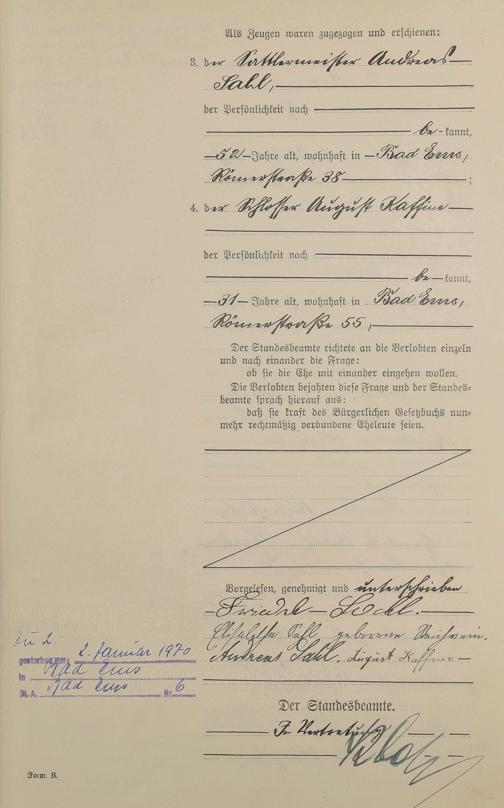 Als Zeugen waren zugezogen und erschienen:
3. der Sattlermeister Andreas
Sahl,
der Persönlichkeit nach
be - kannt,
52 Jahre alt, wohnhaft in Bad Ems,
Römerstraße 38 ;
4. der Schlosser August
der Persönlichkeit nach
be - kannt,
31 Jahre alt, wohnhaft in Bad Ems,
Römerstraße 55,
Der Standesbeamte richtete an die Verlobten einzeln
und nach einander die Frage:
ob sie die Ehe mit einander eingehen wollen.
Die Verlobten bejahten diese Frage und der Standes-
beamte sprach hierauf aus:
daß sie kraft des Bürgerlichen Gesetzbuchs nun-
mehr rechtmäßig verbundene Eheleute seien.
Vorgelesen, genehmigt und unterschrieben
Sahl.
Sahl geborene
Andreas Sahl. August
Zu 2.
gestorben am: 2. Januar 1970
in Bad Ems
St. A. Bad Ems Nr. 6
Der Standesbeamte.
In Vertretung
Form. B.